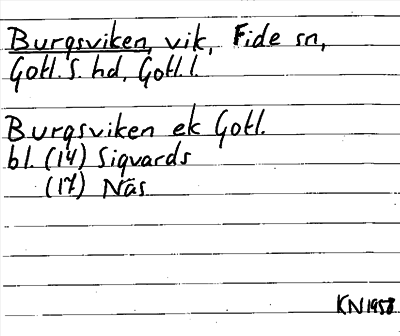 Burgsviken, vik, Fide sn,
Gotl. S. hd, Gotl. l.
Burgsviken ek Gotl.
bl. (14) Sigvards
(17) Näs
KN 1958